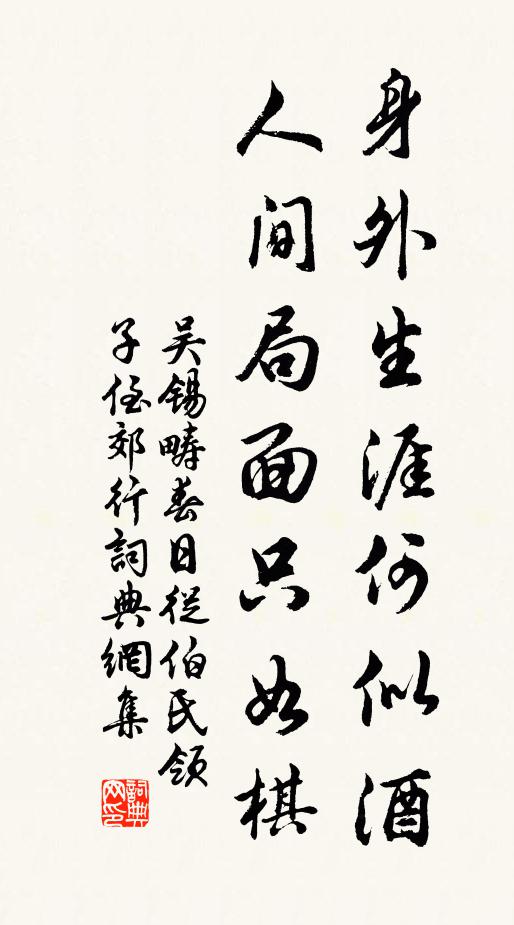 身外生涯何似酒
人间局面只如棋
吴锡畴春日從伯氏領
子侄郊行詞典網集
詞典网印